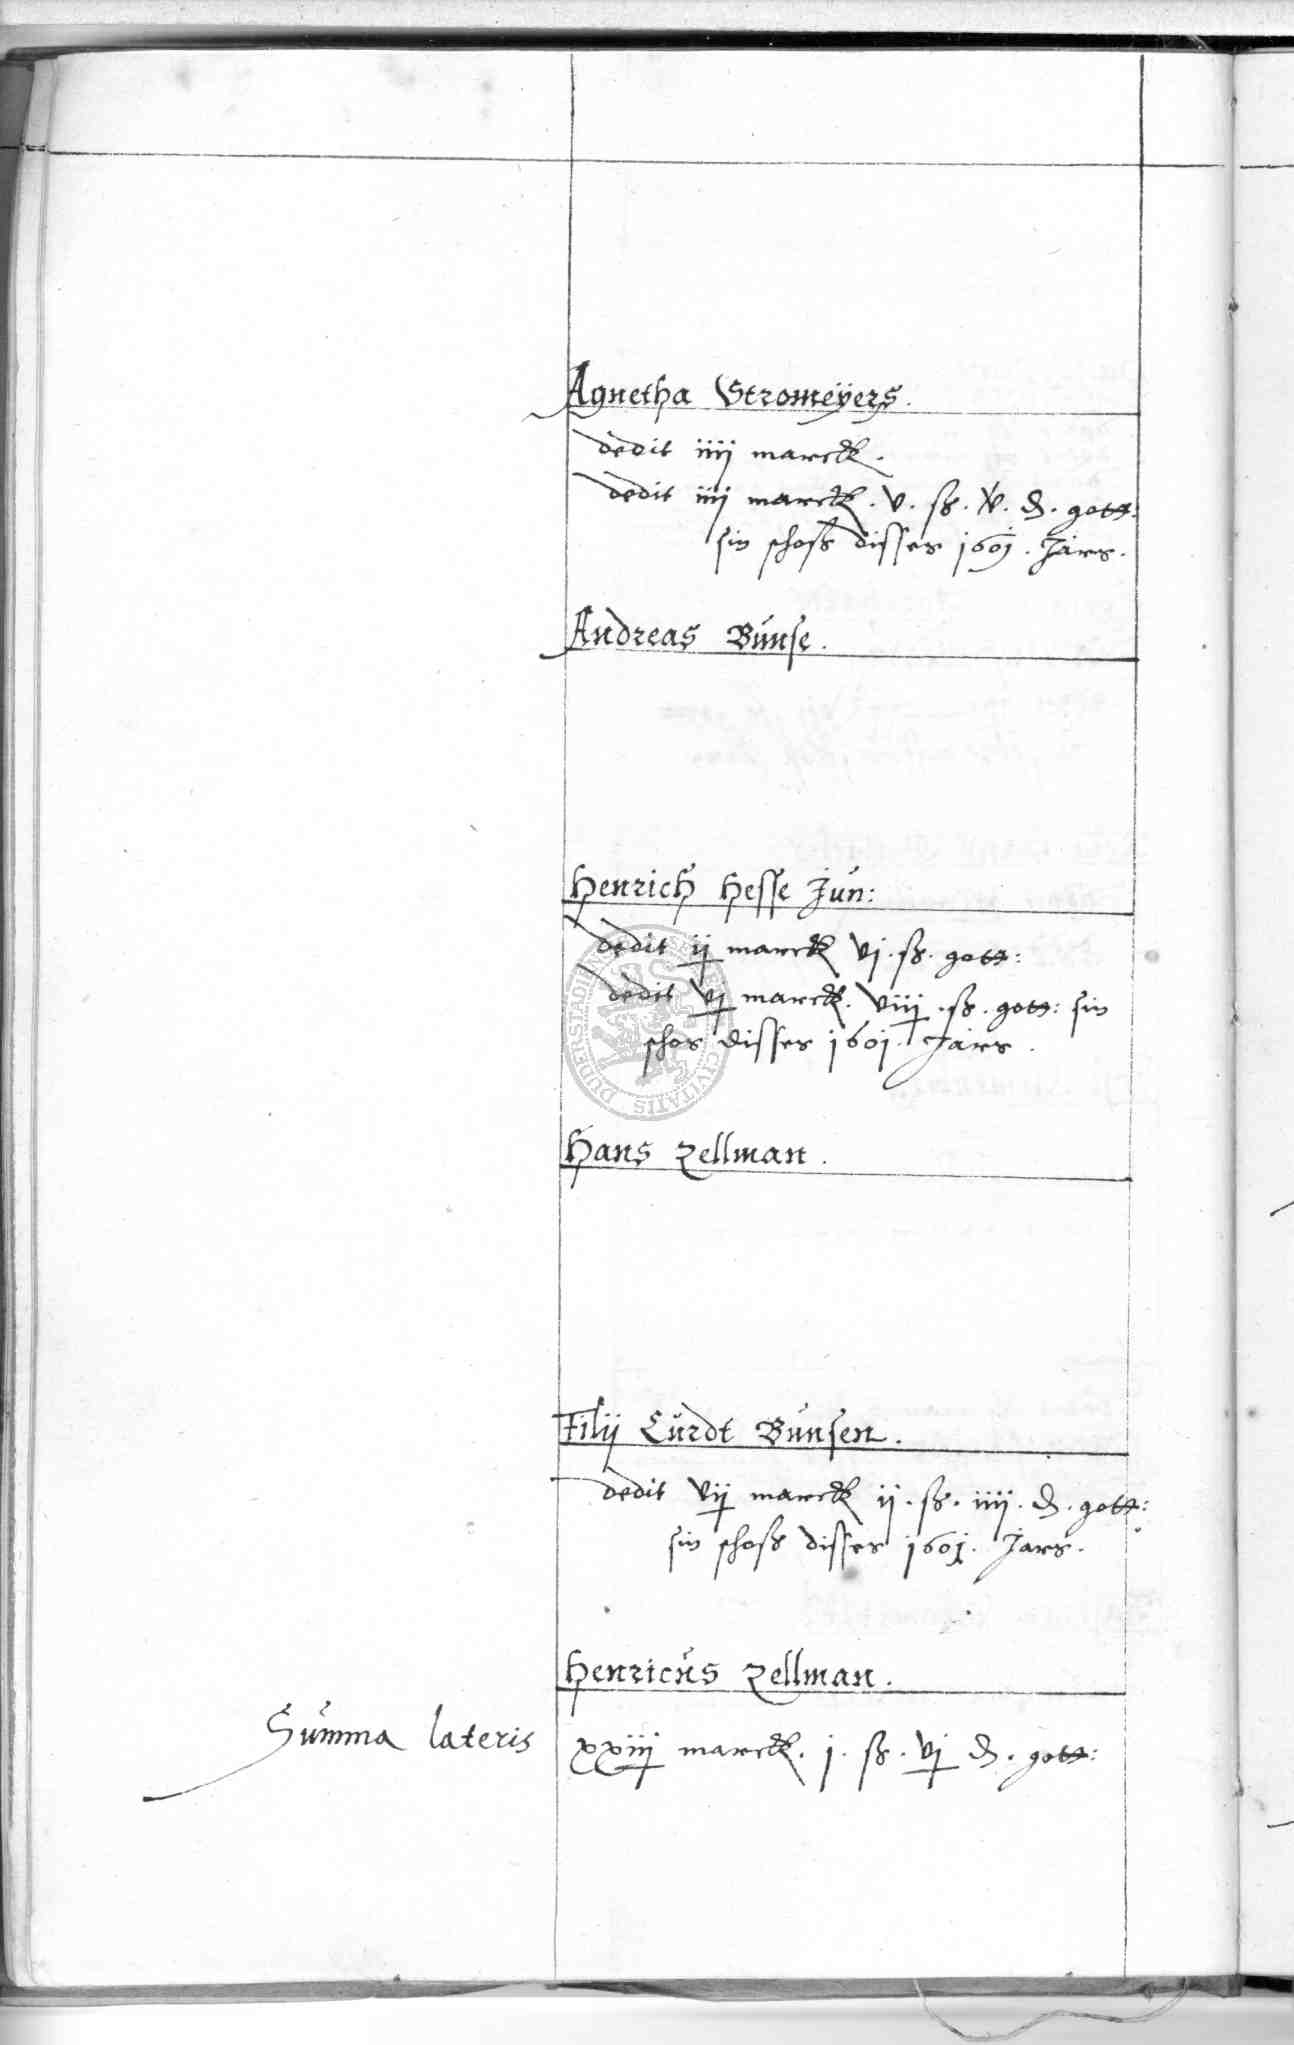 Agnetha Stromeÿers.
dedit iiij marck.
dedit iiij marck. v. ß. v. ₰. gott:
sin schoß disses 1601. Jars.
Andreas Bunse.
Henrich Hesse Jun:
dedit ij marck vj. ß. gott:
dedit vj marck. viij. ß. gott: sin
schos disses 1601. Jars.
SE
DUDERSTADIEN
CIVITATIS
Hans Zellman.
Filij Curdt Bunsen.
dedit vij marck ij. ß. iiij. ₰. gott:
sin schoß disses 1601. Jars.
Henricus Zellman.
Summa lateris xxiij marck. j. ß. vj ₰. gott: